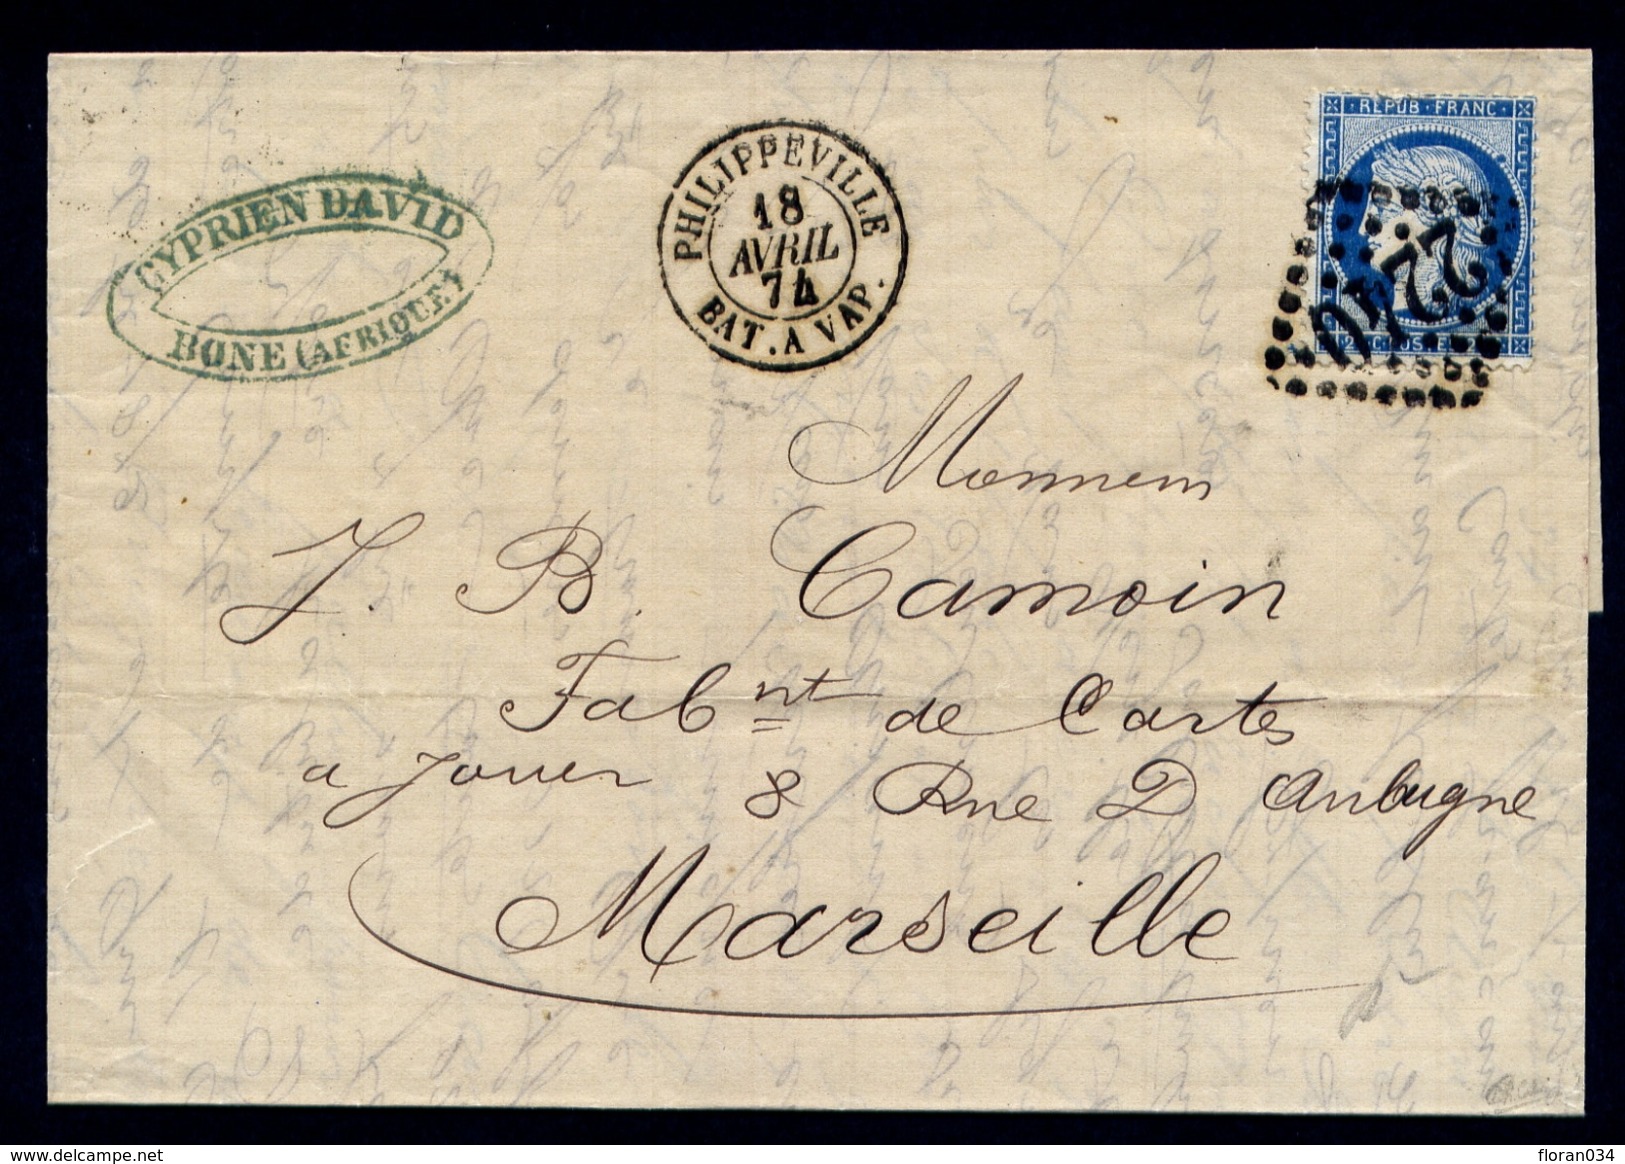 CYPRIEN DAVID
BONE (AFRIQUE)
PHILIPPEVILLE
18
AVRIL
74
BAT. A VAP.
· REPUB · FRANC ·
2240
Monsieur
J. B. Camoin
Fab nt de Cartes
a Jouer 8 Rue D Aubagne
Marseille
delcampe.net
floran034